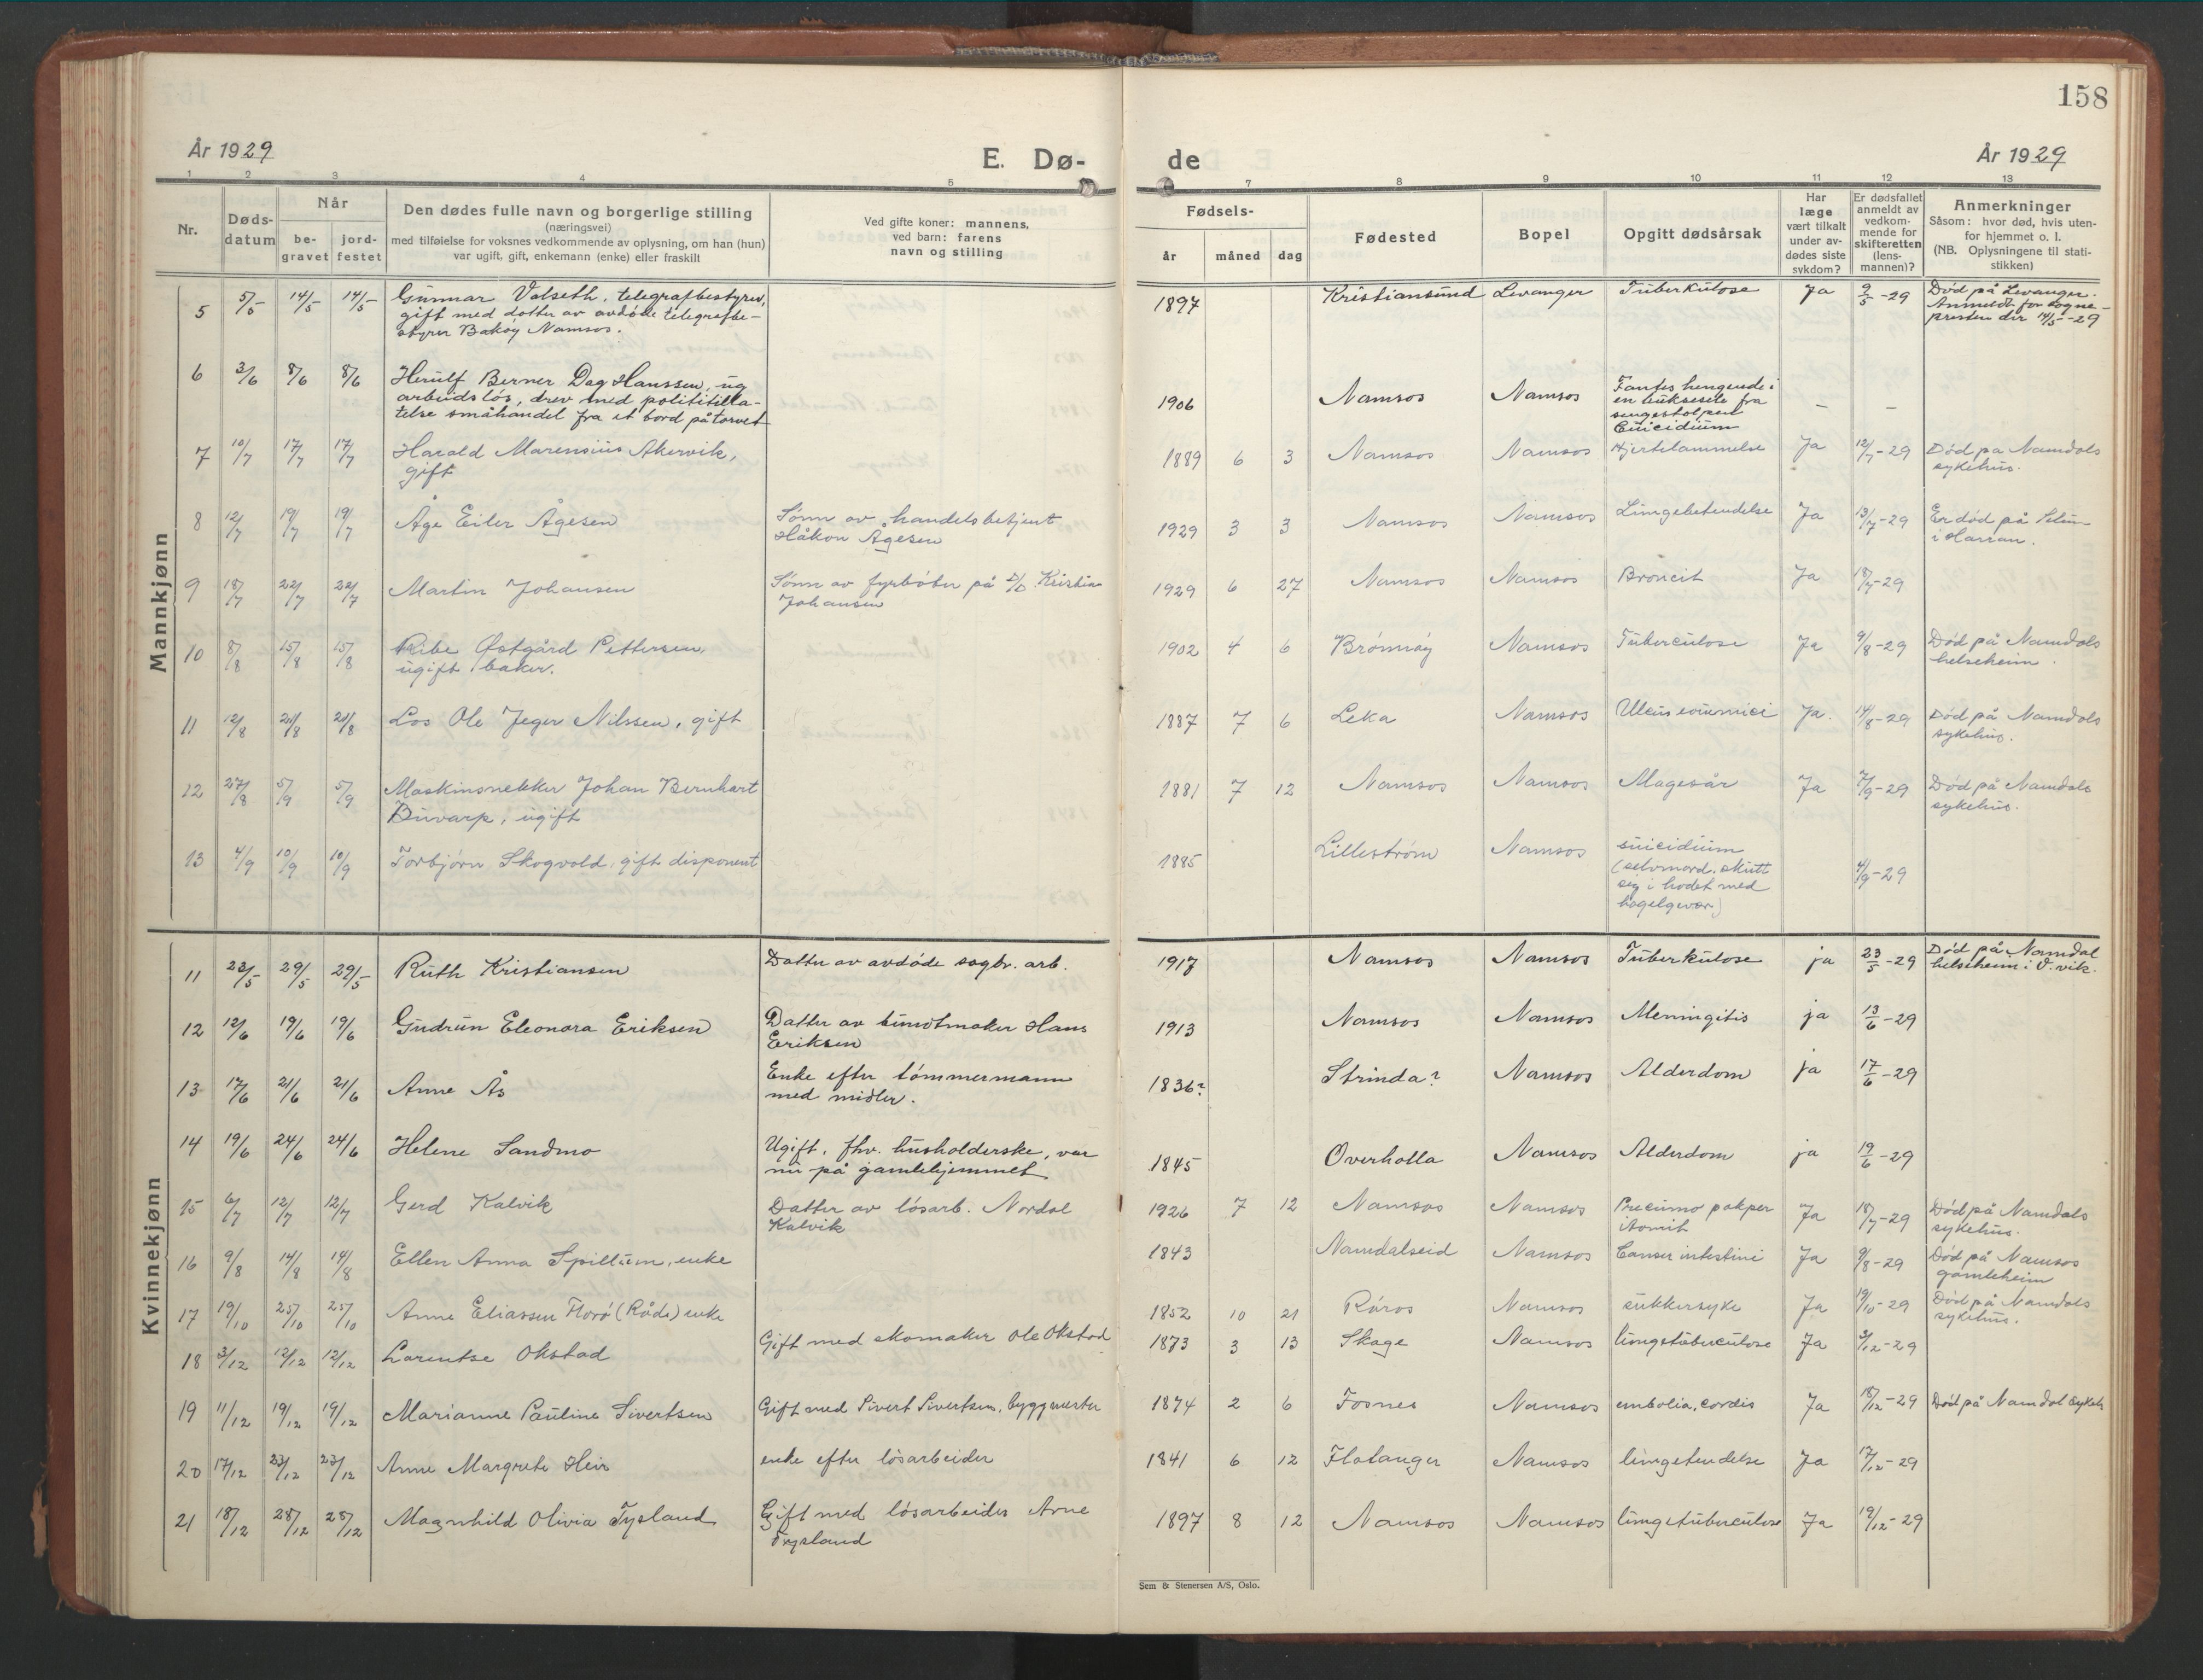 158
År 1929
E. Dø-
de
År 1929
1 2 3 4 5 7 8 9 10 11 12 13
Nr.
Døds-
datum
Når
be-
gravet
jord-
festet
Den dødes fulle navn og borgerlige stilling
(næringsvei)
med tilføielse for voksnes vedkommende av oplysning, om han (hun)
var ugift, gift, enkemann (enke) eller fraskilt
Ved gifte koner: mannens,
ved barn: farens
navn og stilling
Fødsels-
år måned dag
Fødested
Bopel
Opgitt dødsårsak
Har
læge
vært tilkalt
under av-
dødes siste
sykdom?
Er dødsfallet
anmeldt av
vedkom-
mende for
skifteretten
(lens-
mannen)?
Anmerkninger
Såsom: hvor død, hvis uten-
for hjemmet o. l.
(NB. Oplysningene til stati-
stikken)
Mannkjønn
5 5/5 14/5 14/5 Gunnar Volseth, telegrafbestyrer,
gift med datter av avdøde telegrafbe-
styrer Bakøy Namsos.
1897 Kristiansund Levanger Tuberkulose Ja 9/5-29 Død på Levanger.
Anmeldt for sogne-
presten der 14/5-29
6 3/6 8/6 8/6 Herulf Berner Dag Hanssen, ug
arbeidsløs, drev med polititilla-
telse småhandel fra et bord på torvet
1906 Namsos Namsos Fantes hengende i
en buksesele fra
sengestolpen
Suicidium
– –
7 10/7 17/7 17/7 Harald Marensius Akervik,
gift
1889 6 3 Namsos Namsos Hjertelammelse Ja 12/7-29 Død pa Namdals
sykehus.
8 12/7 19/7 19/7 Åge Eiler Ågesen
Sønn av handelsbetjent
Håkon Ågesen
1929 3 3 Namsos Namsos Lungebetendelse Ja 13/7-29 Er død på
i Harran.
9 18/7 22/7 22/7 Martin Johansen
Sønn av fyrbøter på D/S Kristian
Johansen
1929 6 27 Namsos Namsos Broncit Ja 18/7-29
10 8/8 15/8 15/8 Ribe Østgård Pettersen,
ugift baker.
1902 4 6 Brønnøy Namsos Tuberculose Ja 9/8-29 Død på Namdals
helseheim.
11 12/8 21/8 21/8 Los Ole Jeger Nilssen, gift
1887 7 6 Leka Namsos Ulcus Ja. 14/8-29 Død på Namdals
sykehus.
12 27/8 5/9 5/9 Maskinsnekker Johan Bernhart
Buvarp, ugift
1881 7 12 Namsos Namsos Magesår Ja 7/9-29 Død på Namdals
sykehus.
13 4/9 10/9 10/9 Torbjørn Skogvold, gift disponent
1885 Lillestrøm Namsos suicidium
(selvmord. skutt
seg i hodet med
hagelgevær)
4/9-29
Kvinnekjønn
11 23/5 29/5 29/5 Ruth Kristiansen
Datter av avdøde sagbr. arb.
1917 Namsos Namsos Tuberkulose ja 23/5-29 Død på Namdal
helseheim i V.vik.
12 12/6 19/6 19/6 Gudrun Eleonora Eriksen
Datter av buntmaker Hans
Eriksen
1913 Namsos Namsos Meningitis ja 13/6-29
13 17/6 21/6 21/6 Anne Ås
Enke efter tømmermann
med midler.
1836? Strinda? Namsos Alderdom ja 17/6-29
14 19/6 24/6 24/6 Helene Sandmo
Ugift, fhv. husholderske, var
nu på gamlehjemmet
1845 Overhalla Namsos Alderdom ja 19/6-29
15 6/7 12/7 12/7 Gerd Kalvik
Datter av løsarb. Nordal
Kalvik
1926 7 12 Namsos Namsos Ja 18/7-29 Død på Namdals
sykehus.
16 9/8 14/8 14/8 Ellen Anna Spillum, enke
1843 Namdalseid Namsos Canser intestini Ja 9/8-29 Død på Namsos
gamleheim
17 19/10 25/10 25/10 Anne Eliassen Florø (Råde) enke
1852 10 21 Røros Namsos sukkersyke Ja 19/10-29 Død på Namdals
sykehus.
18 3/12 12/12 12/12 Larentse Okstad
Gift med skomaker Ole Okstad
1873 3 13 Skage Namsos lungetuberculose Ja 5/12-29
19 11/12 19/12 19/12 Marianne Pauline Sivertsen
Gift med Sivert Sivertsen, byggmester
1874 2 6 Fosnes Namsos embolia, cordis Ja 18/12-29 Død på Namdal sykeh
20 17/12 23/12 23/12 Anne Margrete Heir
enke efter løsarbeider
1841 6 12 Flatanger Namsos Ja 17/12-29
21 18/12 28/12 28/12 Magnhild Olivia Tysland
Gift med løsarbeider Arne
Tysland
1897 8 12 Namsos Namsos lungetuberculose Ja 19/12-29
Sem & Stenersen A/S, Oslo.